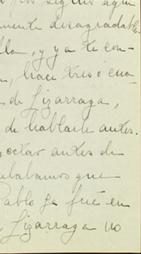 amente desagradabl
lla, y ya te con
, hace tres o cua
de Lizarraga,
de hablarle antes.
octar antes de
alabamos que
Pablo ya fué en
Lizarraga no